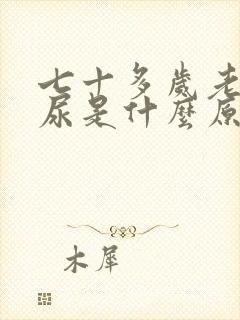 七十多歲老
尿是什麼原
木犀